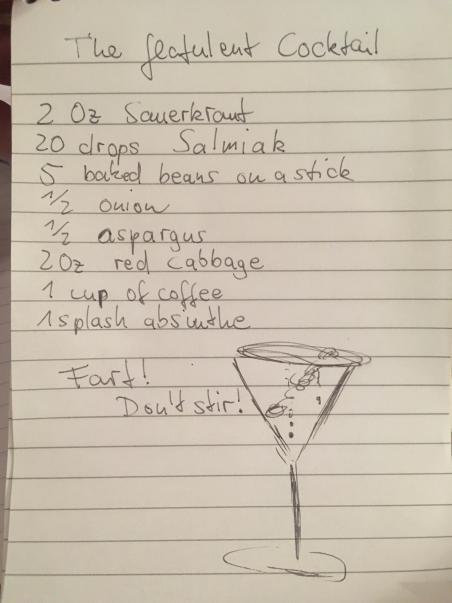 The flatulent Cocktail
2 Oz Sauerkraut
20 drops Salmiak
5 baked beans on a stick
1/2 onion
1/2 aspargus
2 Oz red cabbage
1 cup of coffee
1 splash absinthe
Fart!
Don't stir!